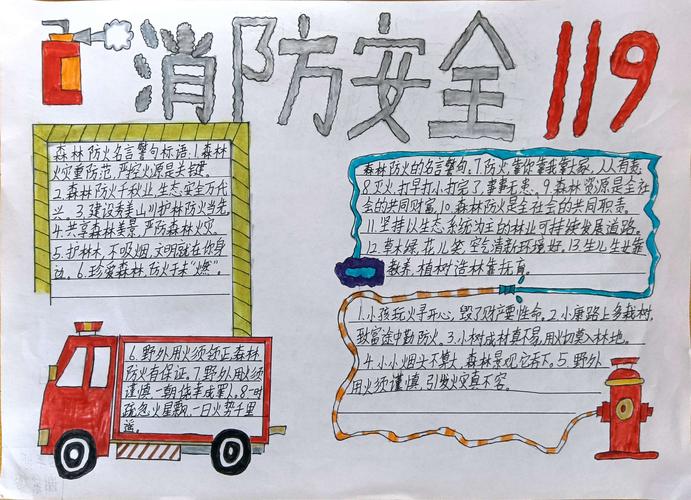 消防安全119
森林防火名言警句标语:1.森林
火灾重防范,严控火源是关键.
2.森林防火千秋业,生态安全万代
兴.3.建设秀美山川护林防火当先.
4.共享森林美景,严防森林火灾.
5.护林木,不吸烟,文明就在你身
边.6.珍爱森林,防火于未"燃".
6.野外用火须领证,森林
防火有保证.7.野外用火须
谨慎,一朝
疏忽
火星飘,一日火势千里
遥.
森林防火的名言警句:7.防火,靠你靠我靠大家,人人有责.
8.灭火,打早打小打完了,事事无患.9.森林资源是全社
会的共同财富.10.森林防火是全社会的共同职责.
11.坚持以生态系统为主的林业可持续发展道路.
12.草木绿,花儿笑,空气清新环境好.13.生儿生女靠
教养,植树造林靠抚育.
1.小孩玩火寻开心,毁了财产要性命.2.小康路上多栽树,
致富途中勤防火.3.小树成材真不易,用火切莫入林地.
4.小小烟头不算大,森林景观它吞下.5.野外
用火须谨慎,引发火灾真不容.